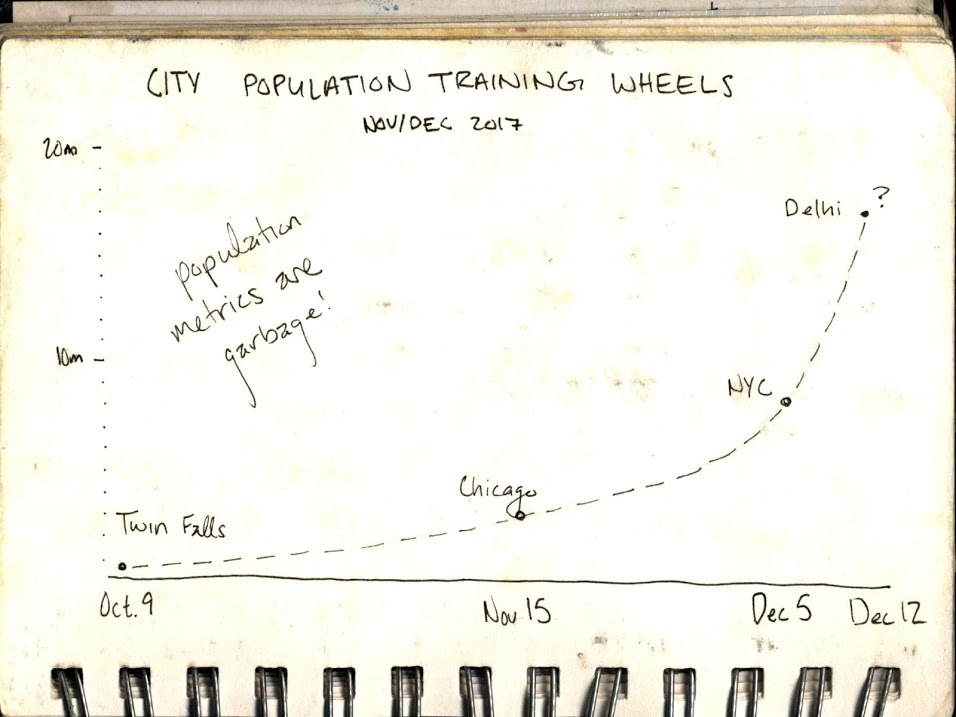 CITY POPULATION TRAINING WHEELS
NOV/DEC 2017
20m
Delhi ?
population
metrics are
garbage!
10m
NYC
Chicago
Twin Falls
Oct. 9
Nov 15
Dec 5
Dec 12